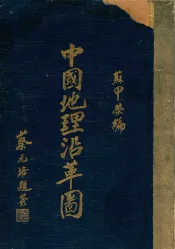 蘇甲榮編
中國地理沿革圖
蔡元培題簽